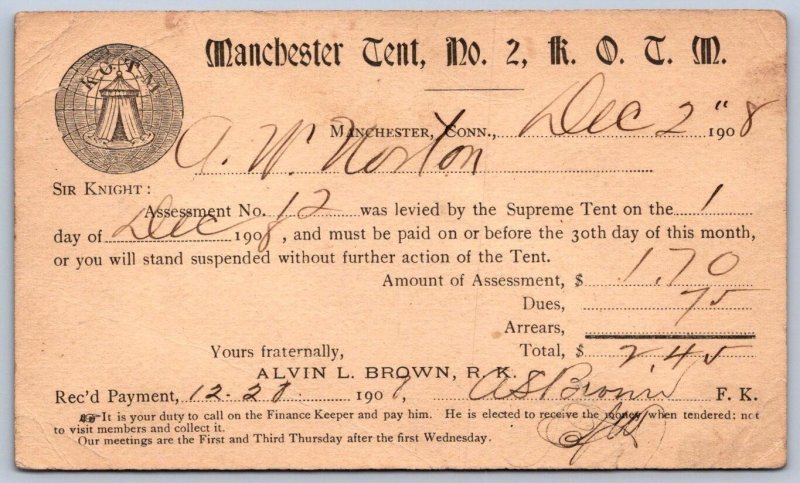 K. O. T. M
Manchester Tent, No. 2, K. O. T. M.
Manchester, Conn., Dec 2" 1908
A. W. Norton
Sir Knight:
Assessment No. 12 was levied by the Supreme Tent on the 1
day of Dec 1908, and must be paid on or before the 30th day of this month,
or you will stand suspended without further action of the Tent.
Amount of Assessment, $ 1.70
Dues, 75
Arrears,
Total, $ 2.45
Yours fraternally,
ALVIN L. BROWN, R. K.
Rec'd Payment, 12-28 1908, Brown F. K.
☞It is your duty to call on the Finance Keeper and pay him. He is elected to receive the money when tendered; not
to visit members and collect it.
Our meetings are the First and Third Thursday after the first Wednesday.